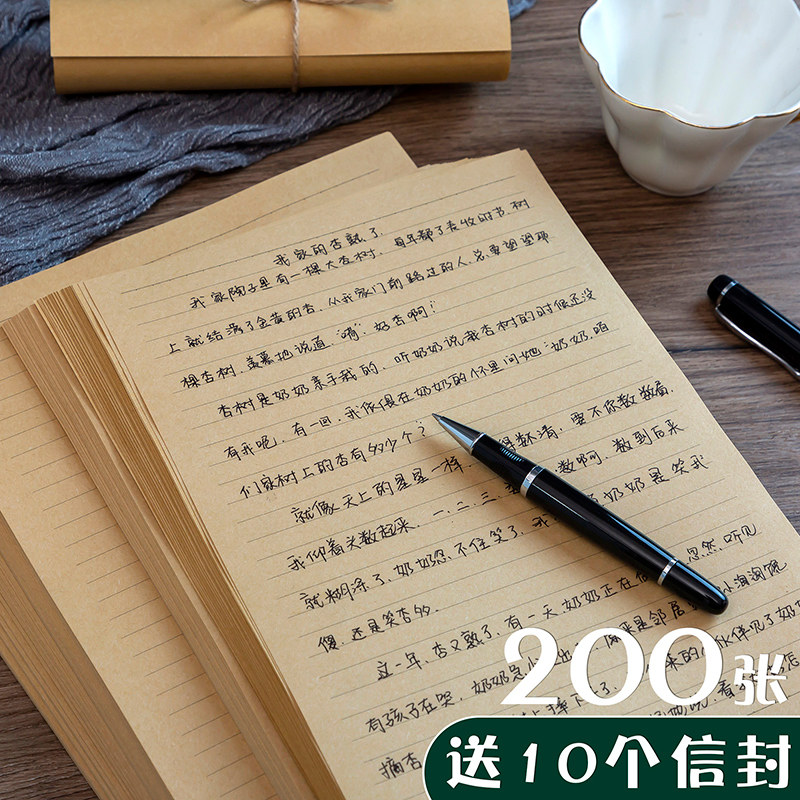 我家的杏熟了
我家院子里有一棵大杏树.每年都了麦收时节.树
上就结满了金黄的杏.从我家门前路过的人.总要望望那
棵杏树.羡慕地说道"嗬!好杏啊!"
杏树是奶奶亲手栽的.听奶奶说栽杏树的时候还没
有我呢.有一回.我依偎在奶奶的怀里问她"奶奶.咱
们家树上的杏有多少个?
就像天上的星星一样.得数清.要不你数数看.
我仰着头数起来.一.二.三.数啊.数到后来
就糊涂了.奶奶忍不住笑了.我奶奶是笑我
傻.还是笑杏多.
这一年.杏又熟了.有一天.奶奶正在忽然.听见
有孩子在哭.奶奶出原来是邻居小淘淘馋
摘杏摔下了
200张
送10个信封